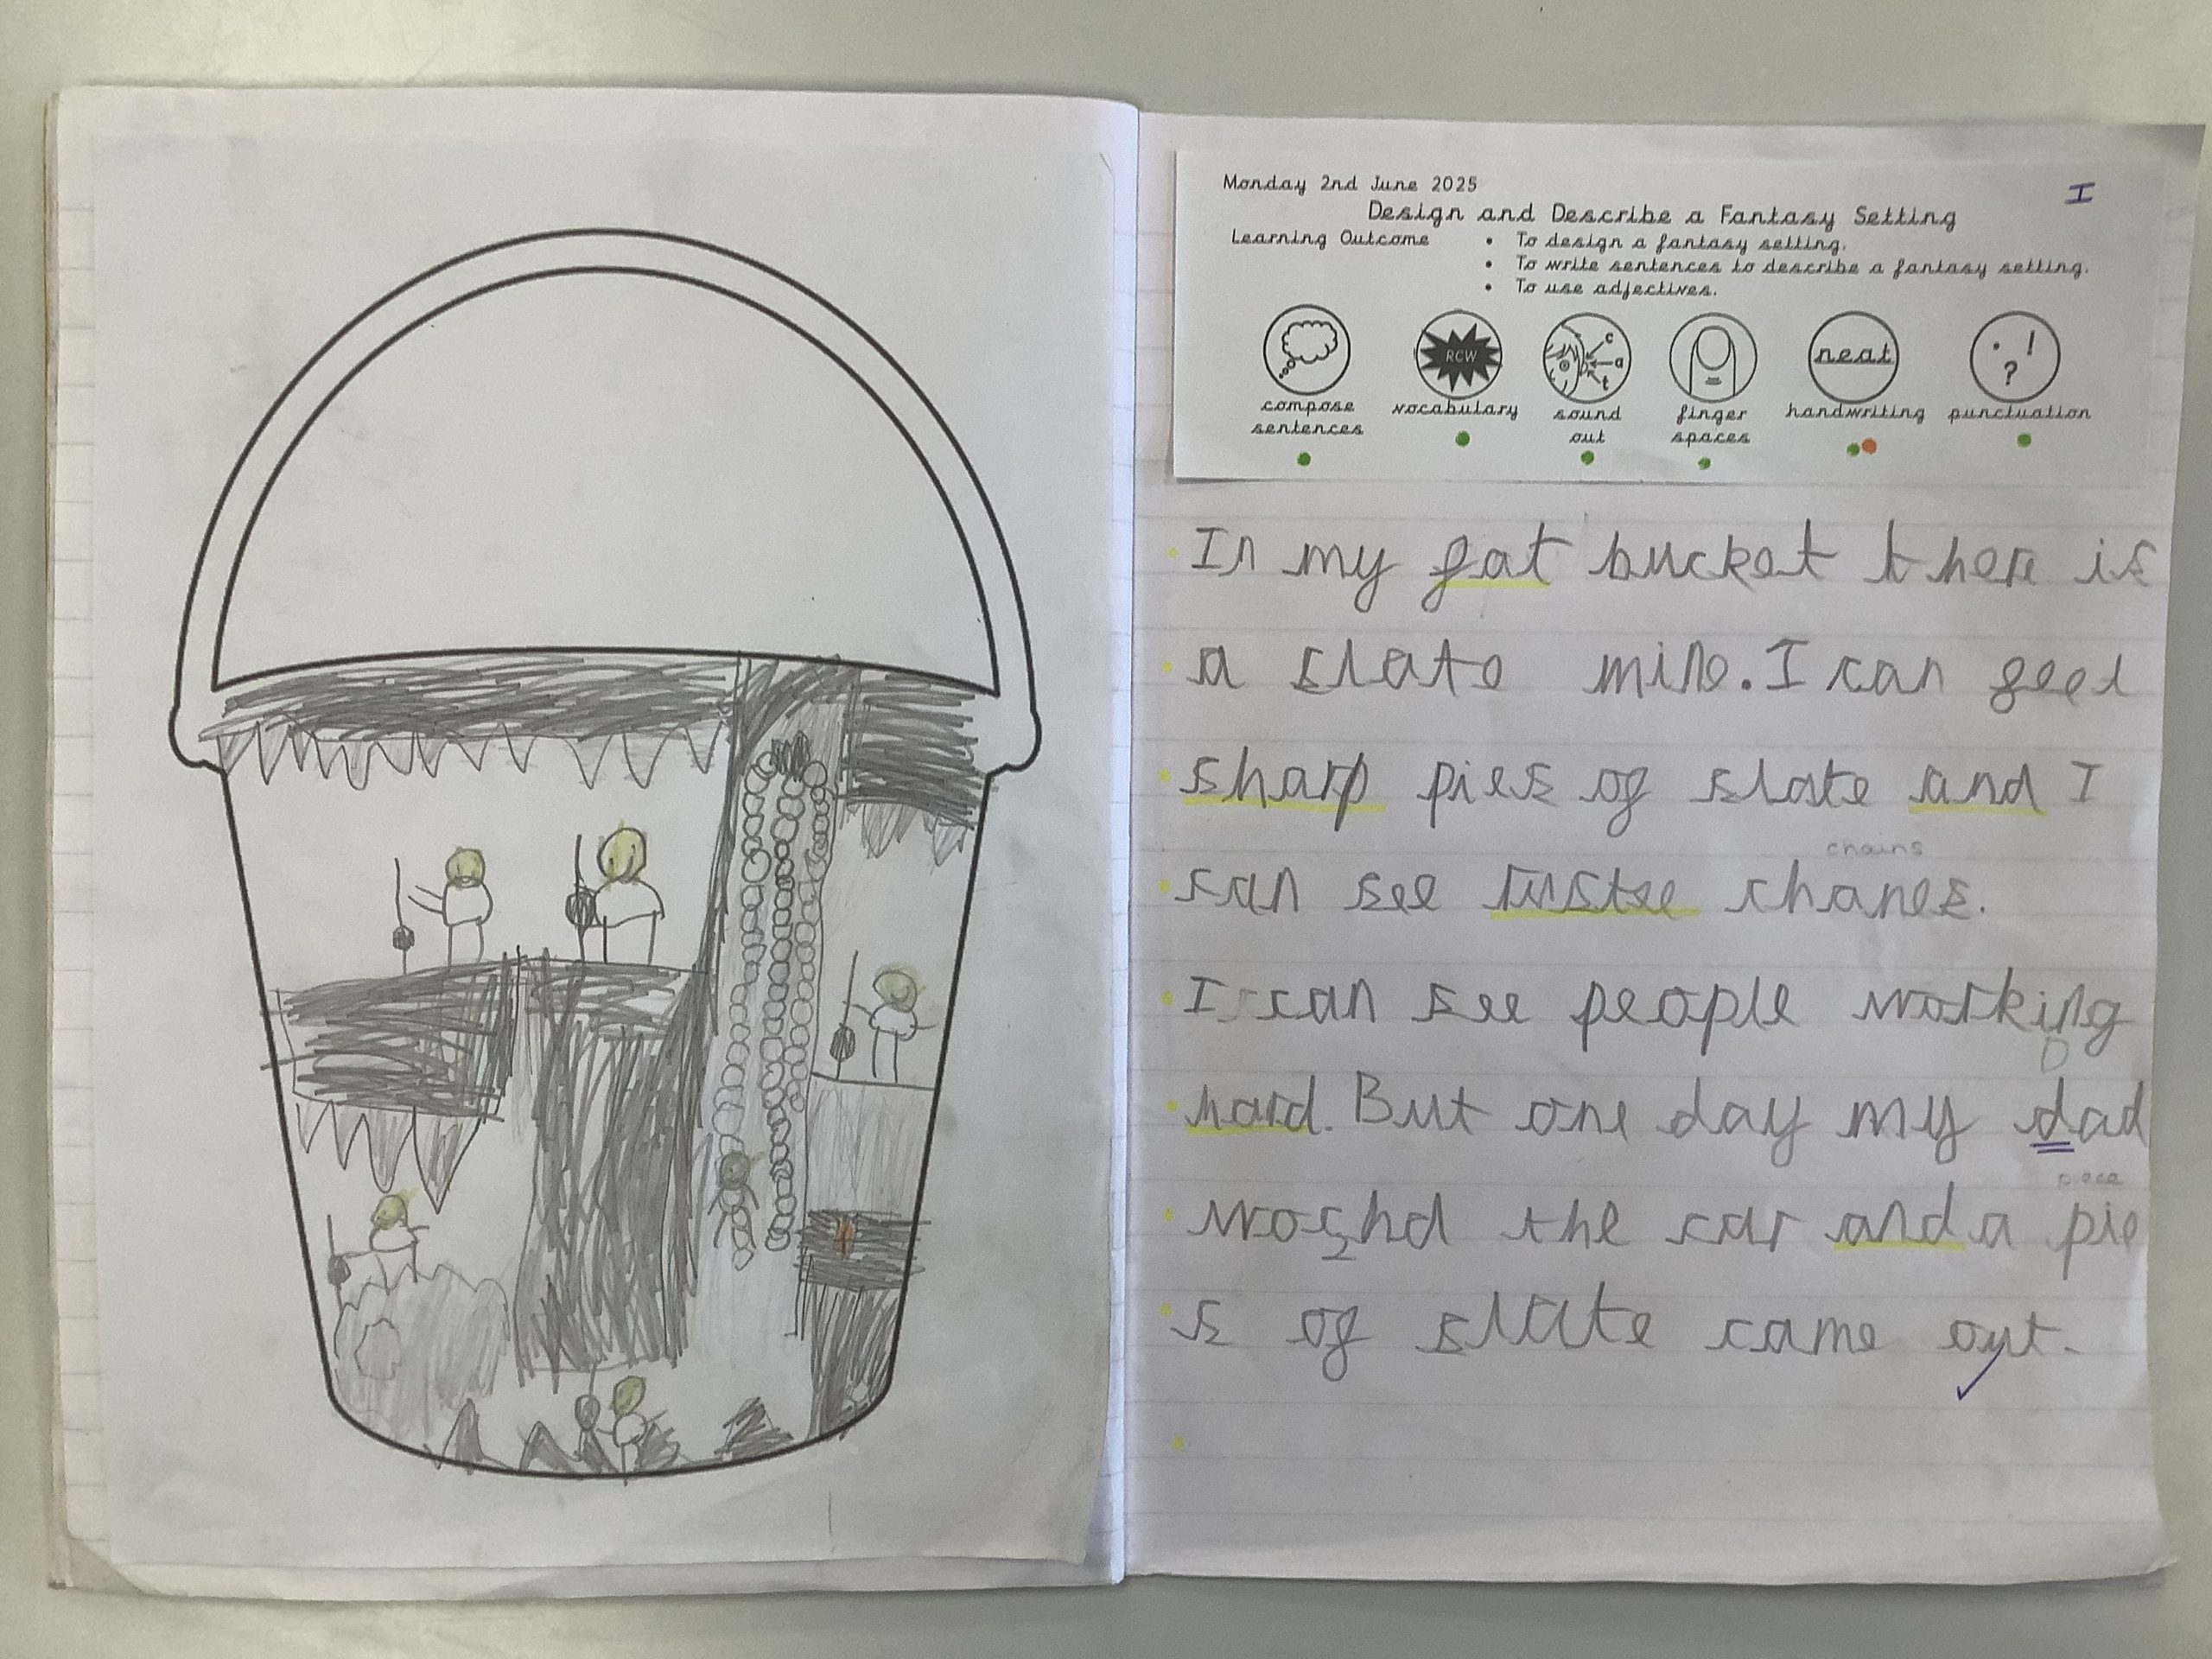 Monday 2nd June 2025
I
Design and Describe a Fantasy Setting
Learning Outcome • To design a fantasy setting.
• To write sentences to describe a fantasy setting.
• To use adjectives.
RCW
c
a
t
neat
. ! ?
compose sentences
vocabulary
sound out
finger spaces
handwriting
punctuation
In my fat bucket there is
a slate mine. I can feel
sharp pies of slate and I
chains
can see rustee chanes.
I can see people working
hard. But one day my dad
piece
woshd the car and a pie
s of slate came out.